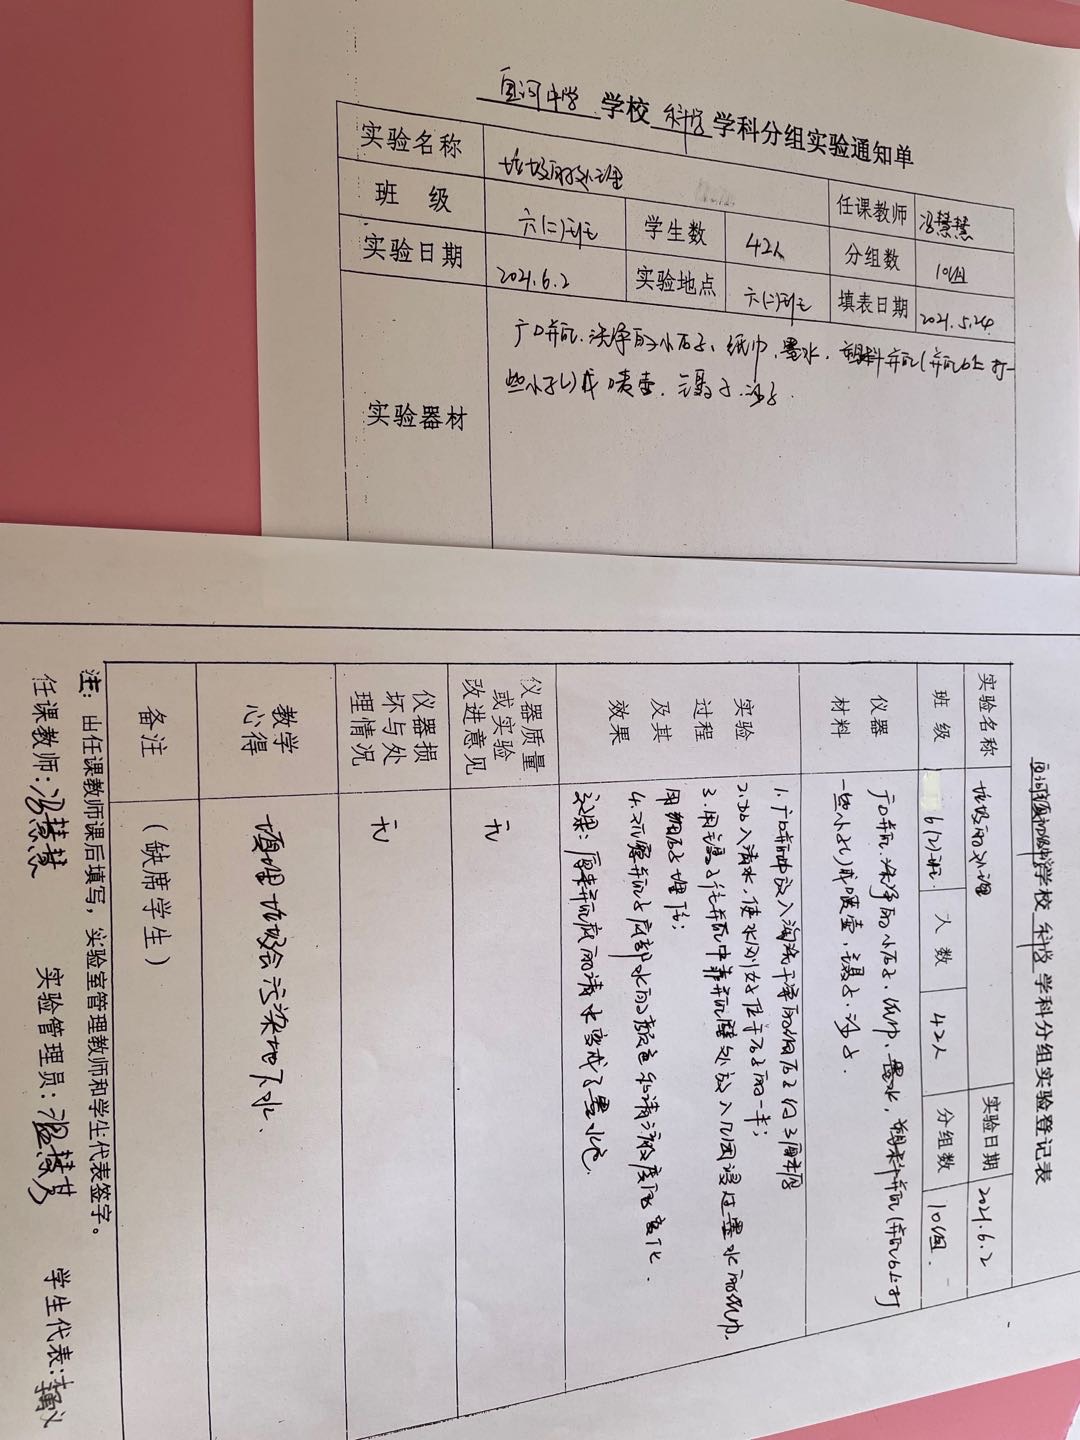 中学 学校 科学 学科分组实验通知单
实验名称 垃圾的处理 任课教师 冯慧慧
班 级 六(二)班 学生数 42人 分组数 10组
实验日期 2021.6.2 实验地点 六(二)班 填表日期 2021.5.24
实验器材 广口瓶、洗净的小石子、纸巾、墨水、塑料瓶(瓶口上打一
些小孔)或喷壶、镊子、沙子
学校 科学 学科分组实验登记表
实验名称 垃圾的处理 实验日期 2021.6.2
班 级 6(2)班 人 数 42人 分组数 10组.
仪器材料 广口瓶、洗净的小石子、纸巾、墨水、塑料瓶(瓶口上打
一些小孔)或喷壶、镊子、沙子
实验过程及其效果 1.广口瓶中放入淘洗干净的细石子约3厘米厚
2.加入清水,使水刚好在石子的一半;
3.用镊子在瓶中靠瓶壁处放入几团浸过墨水的纸巾.
用细石子埋住;
4.观察瓶子底部水的颜色和清澈度的变化.
效果:原来瓶底的清水变成了墨水色.
仪器质量或实验改进意见 无
仪器损坏与处理情况 无
教学心得 填埋垃圾会污染地下水.
备注 (缺席学生)
注:由任课教师课后填写,实验室管理教师和学生代表签字。
任课教师:冯慧慧 实验管理员:温慧芳 学生代表: